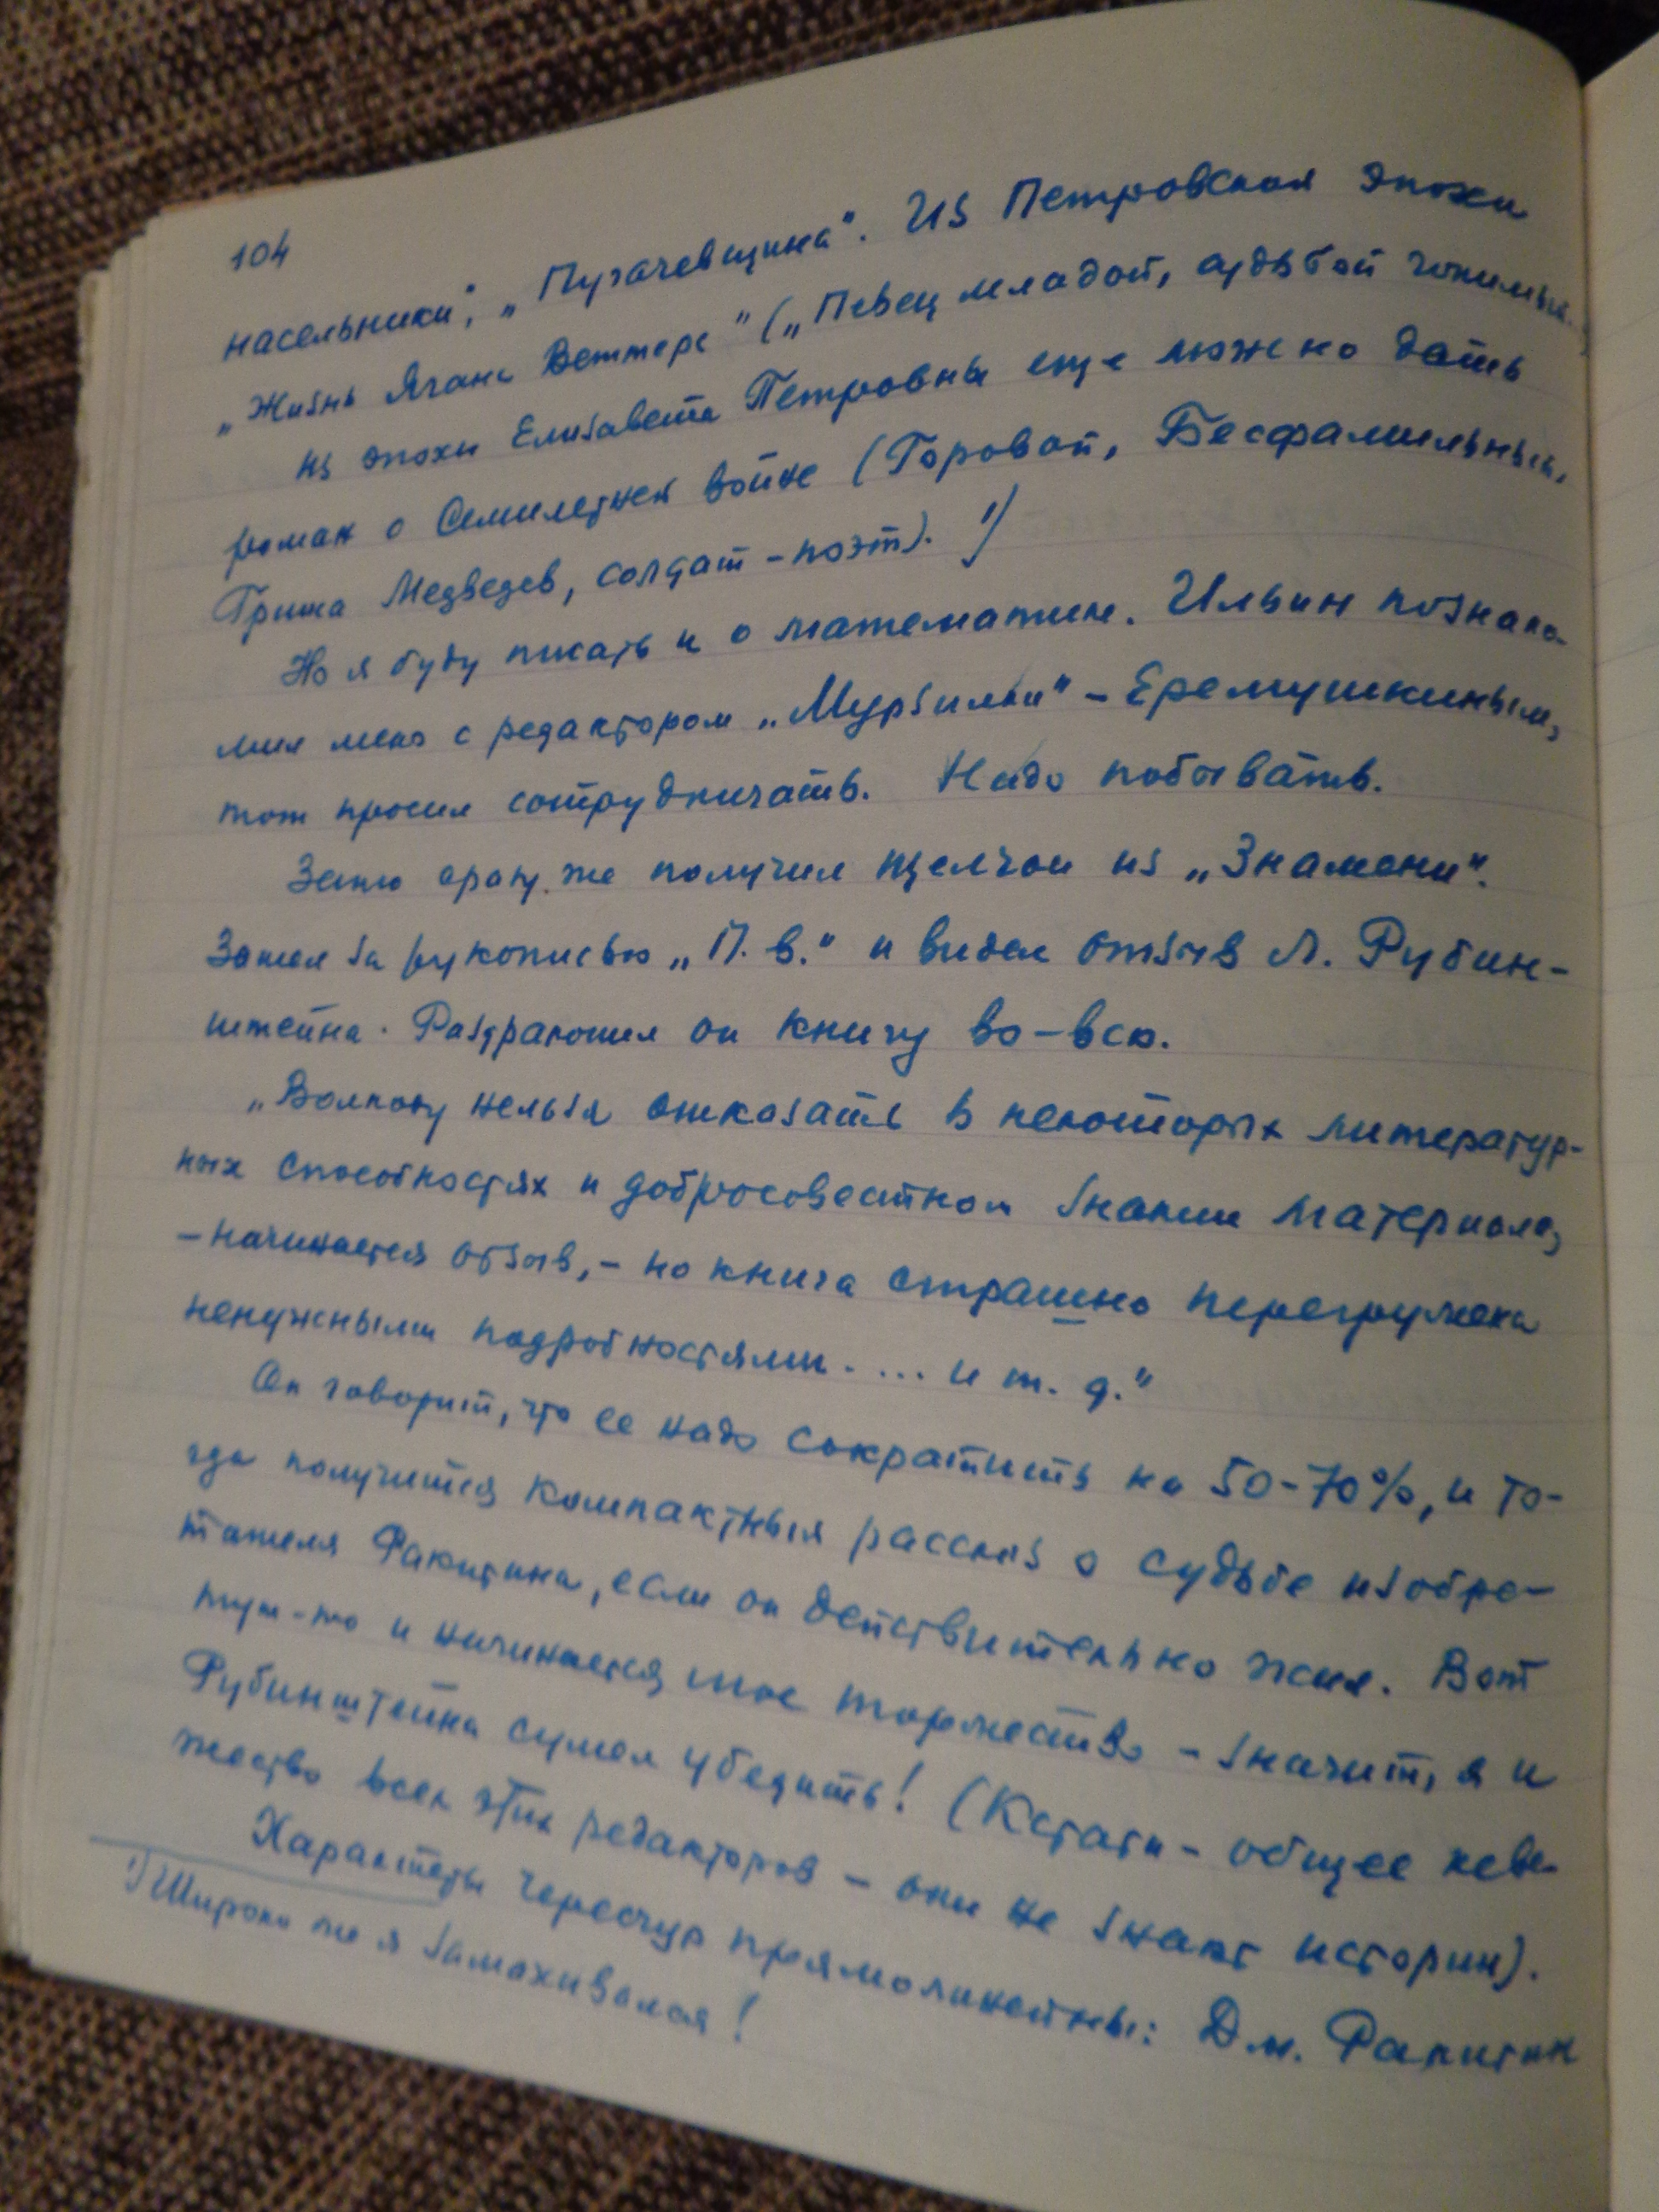 104
насельники", „Пугачевщина". Из Петровской эпохи
„Жизнь Ягана Веттера" („Певец младой, судьбой гонимый")
Из эпохи Елизавета Петровны еще можно дать
роман о Семилетней войне (Горовой, Бесфамильный,
Гриша Медведев, солдат-поэт). 1)
Но я буду писать и о математике. Ильин познако-
мил меня с редактором „Мурзилки" – Еремушкиным,
тот просил сотрудничать. Надо побывать.
Зато сразу же получил щелчок из „Знамени".
Зашел за рукописью „П. в." и видел отзыв Л. Рубин-
штейна. Раздраконил он книгу во-всю.
„Волкову нельзя отказать в некоторых литератур-
ных способностях и добросовестном знании материала,
– начинается отзыв, – но книга страшно перегружена
ненужными подробностями.... и т. д."
Он говорит, что ее надо сократить на 50-70%, и то-
гда получится компактный рассказ о судьбе изобре-
тателя Ракитина, если он действительно жил. Вот
тут-то и начинается мое торжество – значит, я и
Рубинштейна сумел убедить! (Кстати – общее неве-
жество всех этих редакторов – они не знают истории).
Характеры чересчур прямолинейны: Дм. Ракитин
1) Широко же я замахивался!